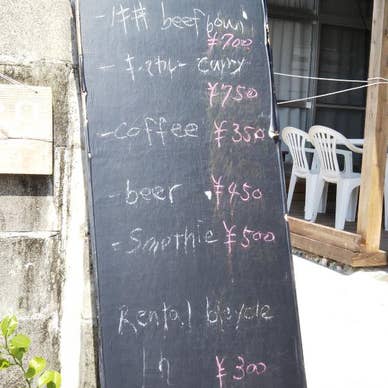 - 牛丼 beef bowl
¥700
- キーマカレー curry
¥750
- coffee ¥350
- beer ¥450
- Smothie ¥500
Rental bicycle
1h ¥300